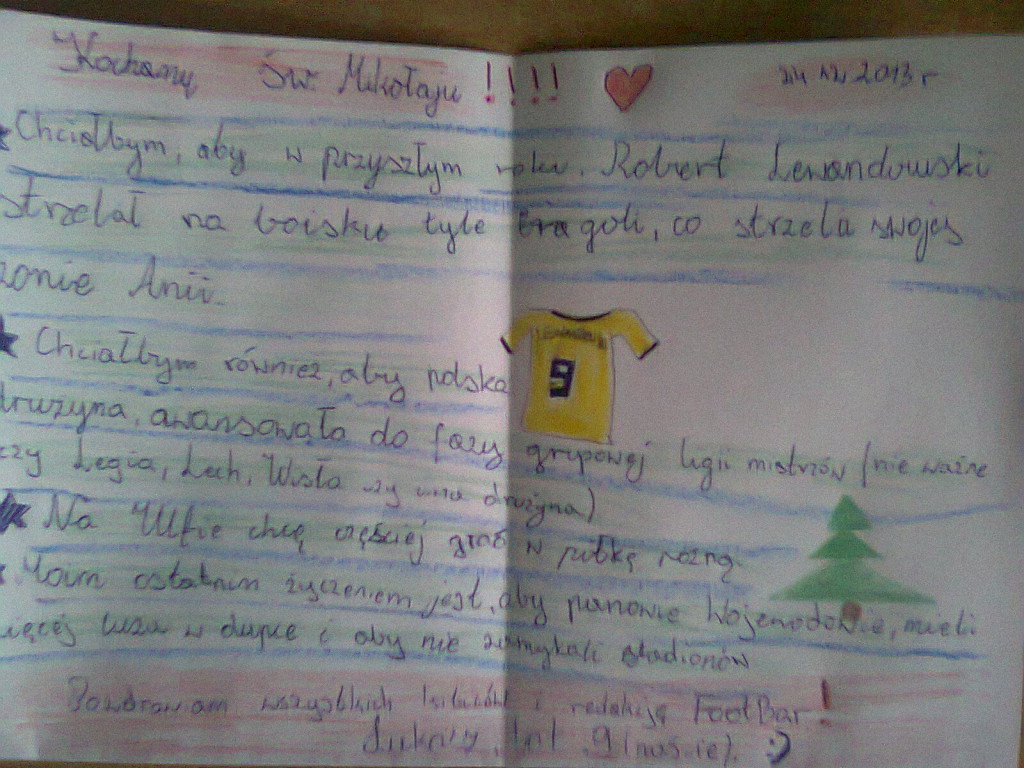 Kochany Św. Mikołaju !!!! 24 12 2013 r
Chciałbym, aby w przyszłym roku. Robert Lewandowski
strzelał na boisku tyle goli, co strzela swojej
żonie Anii.
Chciałbym również, aby polska
drużyna, awansowała do fazy grupowej ligii mistrzów (nie ważne
czy Legia, Lech, Wisła czy inna drużyna)
Na Wfie chcę częściej grać w piłkę nożną.
Moim ostatnim życzeniem jest, aby panowie Wojewodowie, mieli
więcej luzu w dupce i aby nie zamykali stadionów
Pozdrawiam wszystkich i redakcję FootBar!
lat 9 :)
9